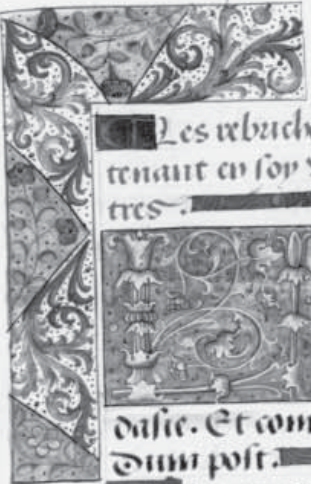 Les rebriche
tenant en soy
tres.
dasie. Et com
Dum post.